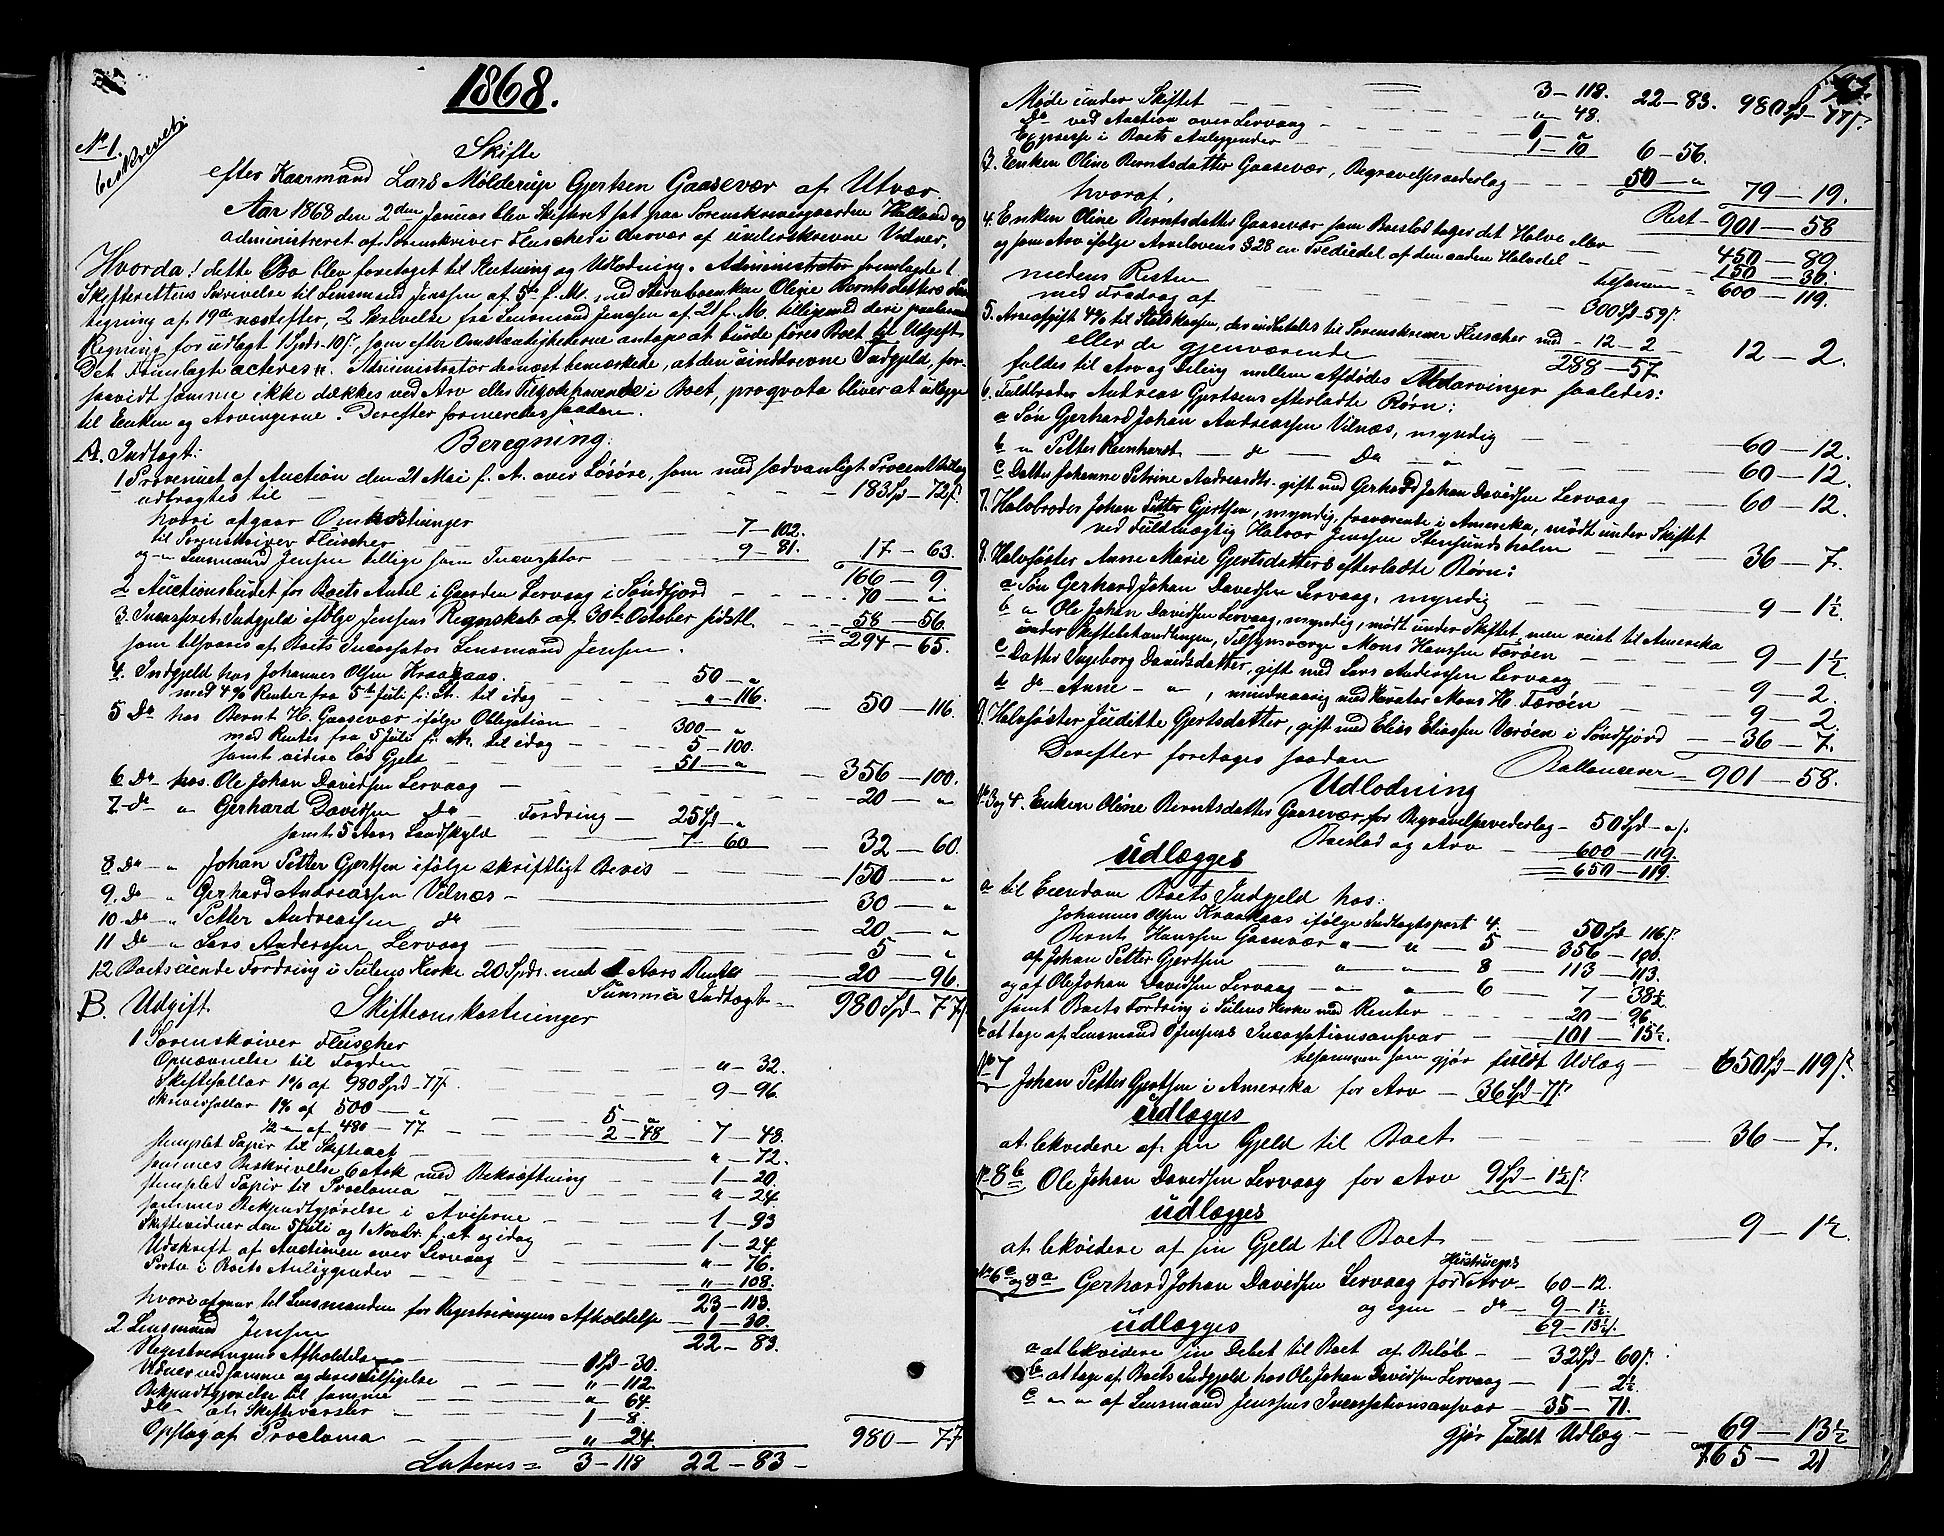 1868.
No 1.
beskrevet.
Skifte
efter Kaarmand Lars Mølderup Gjertsen Gaasevær af Utvær.
Aar 1868 den 2den Januar blev Skifteret sat paa Sorenskrivergaarden Halland og
administreret af Sorenskriver Fleischer i Overvær af underskrevne Vidner,
Hvorda! dette Bo blev foretaget til Slutning og Udlodning. Administrator fremlagte 1
Skifterettens Skrivelse til Lensmand Jenssen af 5te f. M. med Sterboenken Oline Berntsdatters
tegning af 19de næstefter, 2 Skrivelse fra Lensmand Jenssen af 21 f. M. tilligemed deri paaberaabt
Regning for udlagt 1 Spd-10 s, som efter Omstændighederne antages at burde føres Boet til Udgift.
Det Fremlagte acteres. Administrator dernæst bemærkede, at den uinddrevne Indgjeld, for-
saavidt samme ikke dækkes ved Arv eller Tilgodehavende i Boet, proqvota bliver at udlægge
til Enken og Arvingerne. Derefter formeredes saadan
Beregning:
A. Indtægt:
1 Provenuet af Auction den 21 Mai f. A. over Løsøre, som med sædvanligt Procenttillæg
udbragtes til - 183 Spd - 72 s.
hvori afgaar Omkostninger
til Sorenskriver Fleischer - 7 - 102.
og - Lensmand Jensen tillige som Incassator - 9 - 81. 17 - 63.
166 - 9.
2 Auctionsbudet for Boets Antel i Gaarden Lervaag i Søndfjord - 70 - "
3. Incasseret Indgjeld ifølge Jensens Regnskab af 30te October sidstl. - 58 - 56.
som tilsvares af Boets Incassator Lensmand Jensen. 294 - 65.
4. Indgjeld hos Johannes Olsen Kraakaas. 50 - "
med 4% Renter fra 5te Juli f. A. til idag " - 116. 50 - 116.
5 Do hos Bernt H. Gaasevær ifølge Obligation 300 - "
med Renter fra 5 Juli f. A. til idag - 5 - 100.
samt videre løs Gjeld - 51 - " 356 - 100.
6 Do hos Ole Johan Davidsen Lervaag - 20 - "
7 do " Gerhard Davidsen do Fordring - 25 Spd - "
samt 5 Aars Landskyld 7 - 60 32 - 60.
8 Do " Johan Petter Gjertsen ifølge skriftligt Bevis - 150 - "
9. Do " Gerhard Andreassen Vilnæs - 30 - "
10 Do " Petter Andreassen do 20 - "
11 Do " Lars Andersen Lervaag - 5 - "
12 Boets eiende Fordring i Sulens Kirke 20 Spdr. med 4 Aars Renter 20 - 96.
Summa Indtægt - 980 Spd - 77 s
B. Udgift. Skifteomkostninger
1 Sorenskriver Fleischer
Opnævnelse til Fogden " - 32.
Skiftesallar 1% af 980 Spd - 77 s. 9 - 96.
Skriversallar 1% af 500 - " 5 - "
1/2 - af 480 - 77 2 - 48 7 - 48.
stemplet Papir til Skifteact - " - 72.
sammes Beskrivelse 6 Ark med Bekræftning 1 - 20.
stemplet Papir til Proclama " - 24.
sammes Bekjendtgjørelse i Aviserne - 1 - 93
Skiftevidner den 5 Juli og 1 Novbr. f. A. og idag 1 - 24.
Udskrift af Auctionen over Lervaag - " - 76.
Porto i Boets Anliggender - " - 108.
23 - 113.
hvori afgaar til Lensmanden for Registreringens Afholdelse - 1 - 30.
2 Lensmand Jensen 22 - 83.
Registreringens Afholdelse 1 Spd - 30.
Vidner ved samme og deres Tilsigelse " - 112.
Bekjendtgjørelse til samme " - 64.
do - at Skiftevarsler 1 - 8.
Opslag af Proclama " - 24. 980 - 77
Lateres = 3 - 118 22 - 83 -
3 - 118. 22 - 83. 980 Spd - 77 s.
Møde under Skiftet " - 48.
do ved Auction over Lervaag 1 - "
Expresse i Boets Anliggender 1 - 10 6 - 56.
3. Enken Oline Berntsdatter Gaasevær, Begravelsesvederlag - 50 - " 79 - 19.
hvoraf, Rest - 901 - 58
4. Enken Oline Berntsdatter Gaasevær som Boeslod tages det Halve eller 450 - 89.
og som Arv ifølge Arvelovens § 28 en Trediedel af den anden Halvdel - 150 - 30.
medens Resten tilsammen = 600 - 119.
med Fradrag af 300 Spd - 59 s.
5. Arveafgift 4% til Statskassen, der indbetales til Sorenskriver Fleischer med - 12 - 2 - 12 - 2.
eller de gjenværende 288 - 57.
faldes til Arv og Deling mellem Afdødes Udarvinger saaledes:
6. Fuldbroder Andreas Gjertsens efterladte Børn:
a Søn Gerhard Johan Andreassen Vilnæs, myndig - 60 - 12.
b " Petter Reinhardt do Do " 60 - 12.
c Datter Johanne Petrine Andreasdtr. gift med Gerhard Johan Davidsen Lervaag - 60 - 12.
7. Halvbroder Johan Petter Gjertsen, myndig, fraværende i Amerika, mødt under Skiftet
ved Fuldmægtig Halvor Jenssen Stensundsholm 36 - 7.
8. Halvsøster Anne Marie Gjertsdatters efterladte Børn:
a Søn Gerhard Johan Davidsen Lervaag, myndig 9 - 1½.
b " Ole Johan Davidsen Lervaag, myndig, mødt under Skiftet, men reist til Amerika
under Skiftebehandlingen, Tilsynsværge Mons Hanssen Færøen 9 - 1½.
c Datter Ingeborg Davidsdatter, gift med Lars Andersen Lervaag 9 - 2.
d do - Anne - " , mindreaarig med Kurator Mons H. Færøen 9 - 2.
9. Halvsøster Juditte Gjertsdatter, gift med Elias Eliassen Værøen i Søndfjord 36 - 7.
Derefter foretages saadan Ballancerer = 901 - 58.
Udlodning
No 3 og 4. Enken Oline Berntsdatter Gaasevær, for Begravelsesvederlag - 50 Spd - " s.
Boeslod og Arv - 600 - 119.
udlægges = 650 - 119.
a til Eiendom Boets Indgjeld hos:
Johannes Olsen Kraakaas ifølge Indtægtspost 4. 50 Spd - 116 s.
Bernt Hanssen Gaasevær " - " 5 - 356 - 100.
af Johan Petter Gjertsen " - " 8 - 113 - 113.
og af Ole Johan Davidsen Lervaag - " " 6 - 7 - 38½.
samt Boets Fordring i Sulens Kirke med Renter 20 - 96.
b at tage af Lensmand Jensens Incassationsansvar - 101 - 15½.
tilsammen som gjør fuldt Udlæg - 650 Spd - 119 s.
No 7 Johan Petter Gjertsen i Amerika for Arv - 36 Spd - 7 s.
udlægges
at likvidere af sin Gjeld til Boet 36 - 7.
No 8 b Ole Johan Davidsen Lervaag for Arv 9 Spd - 1½ s.
udlægges
at likvidere af sin Gjeld til Boet 9 - 1½.
No 6 c og 8 a Gerhard Johan Davidsen Lervaag for Hustrues Arv - 60 - 12.
og egen - do - 9 - 1½.
udlægges 69 - 13½.
a at likvidere sin Debet til Boet af Beløb - 32 Spd - 60 s.
b at tage af Boets Indgjeld hos Ole Johan Davidsen Lervaag - 1 - 2½.
c " " af Lensmand Jenssens Incassationsansvar - 35 - 71.
gjør fuldt Udlæg - 69 - 13½
765 - 21